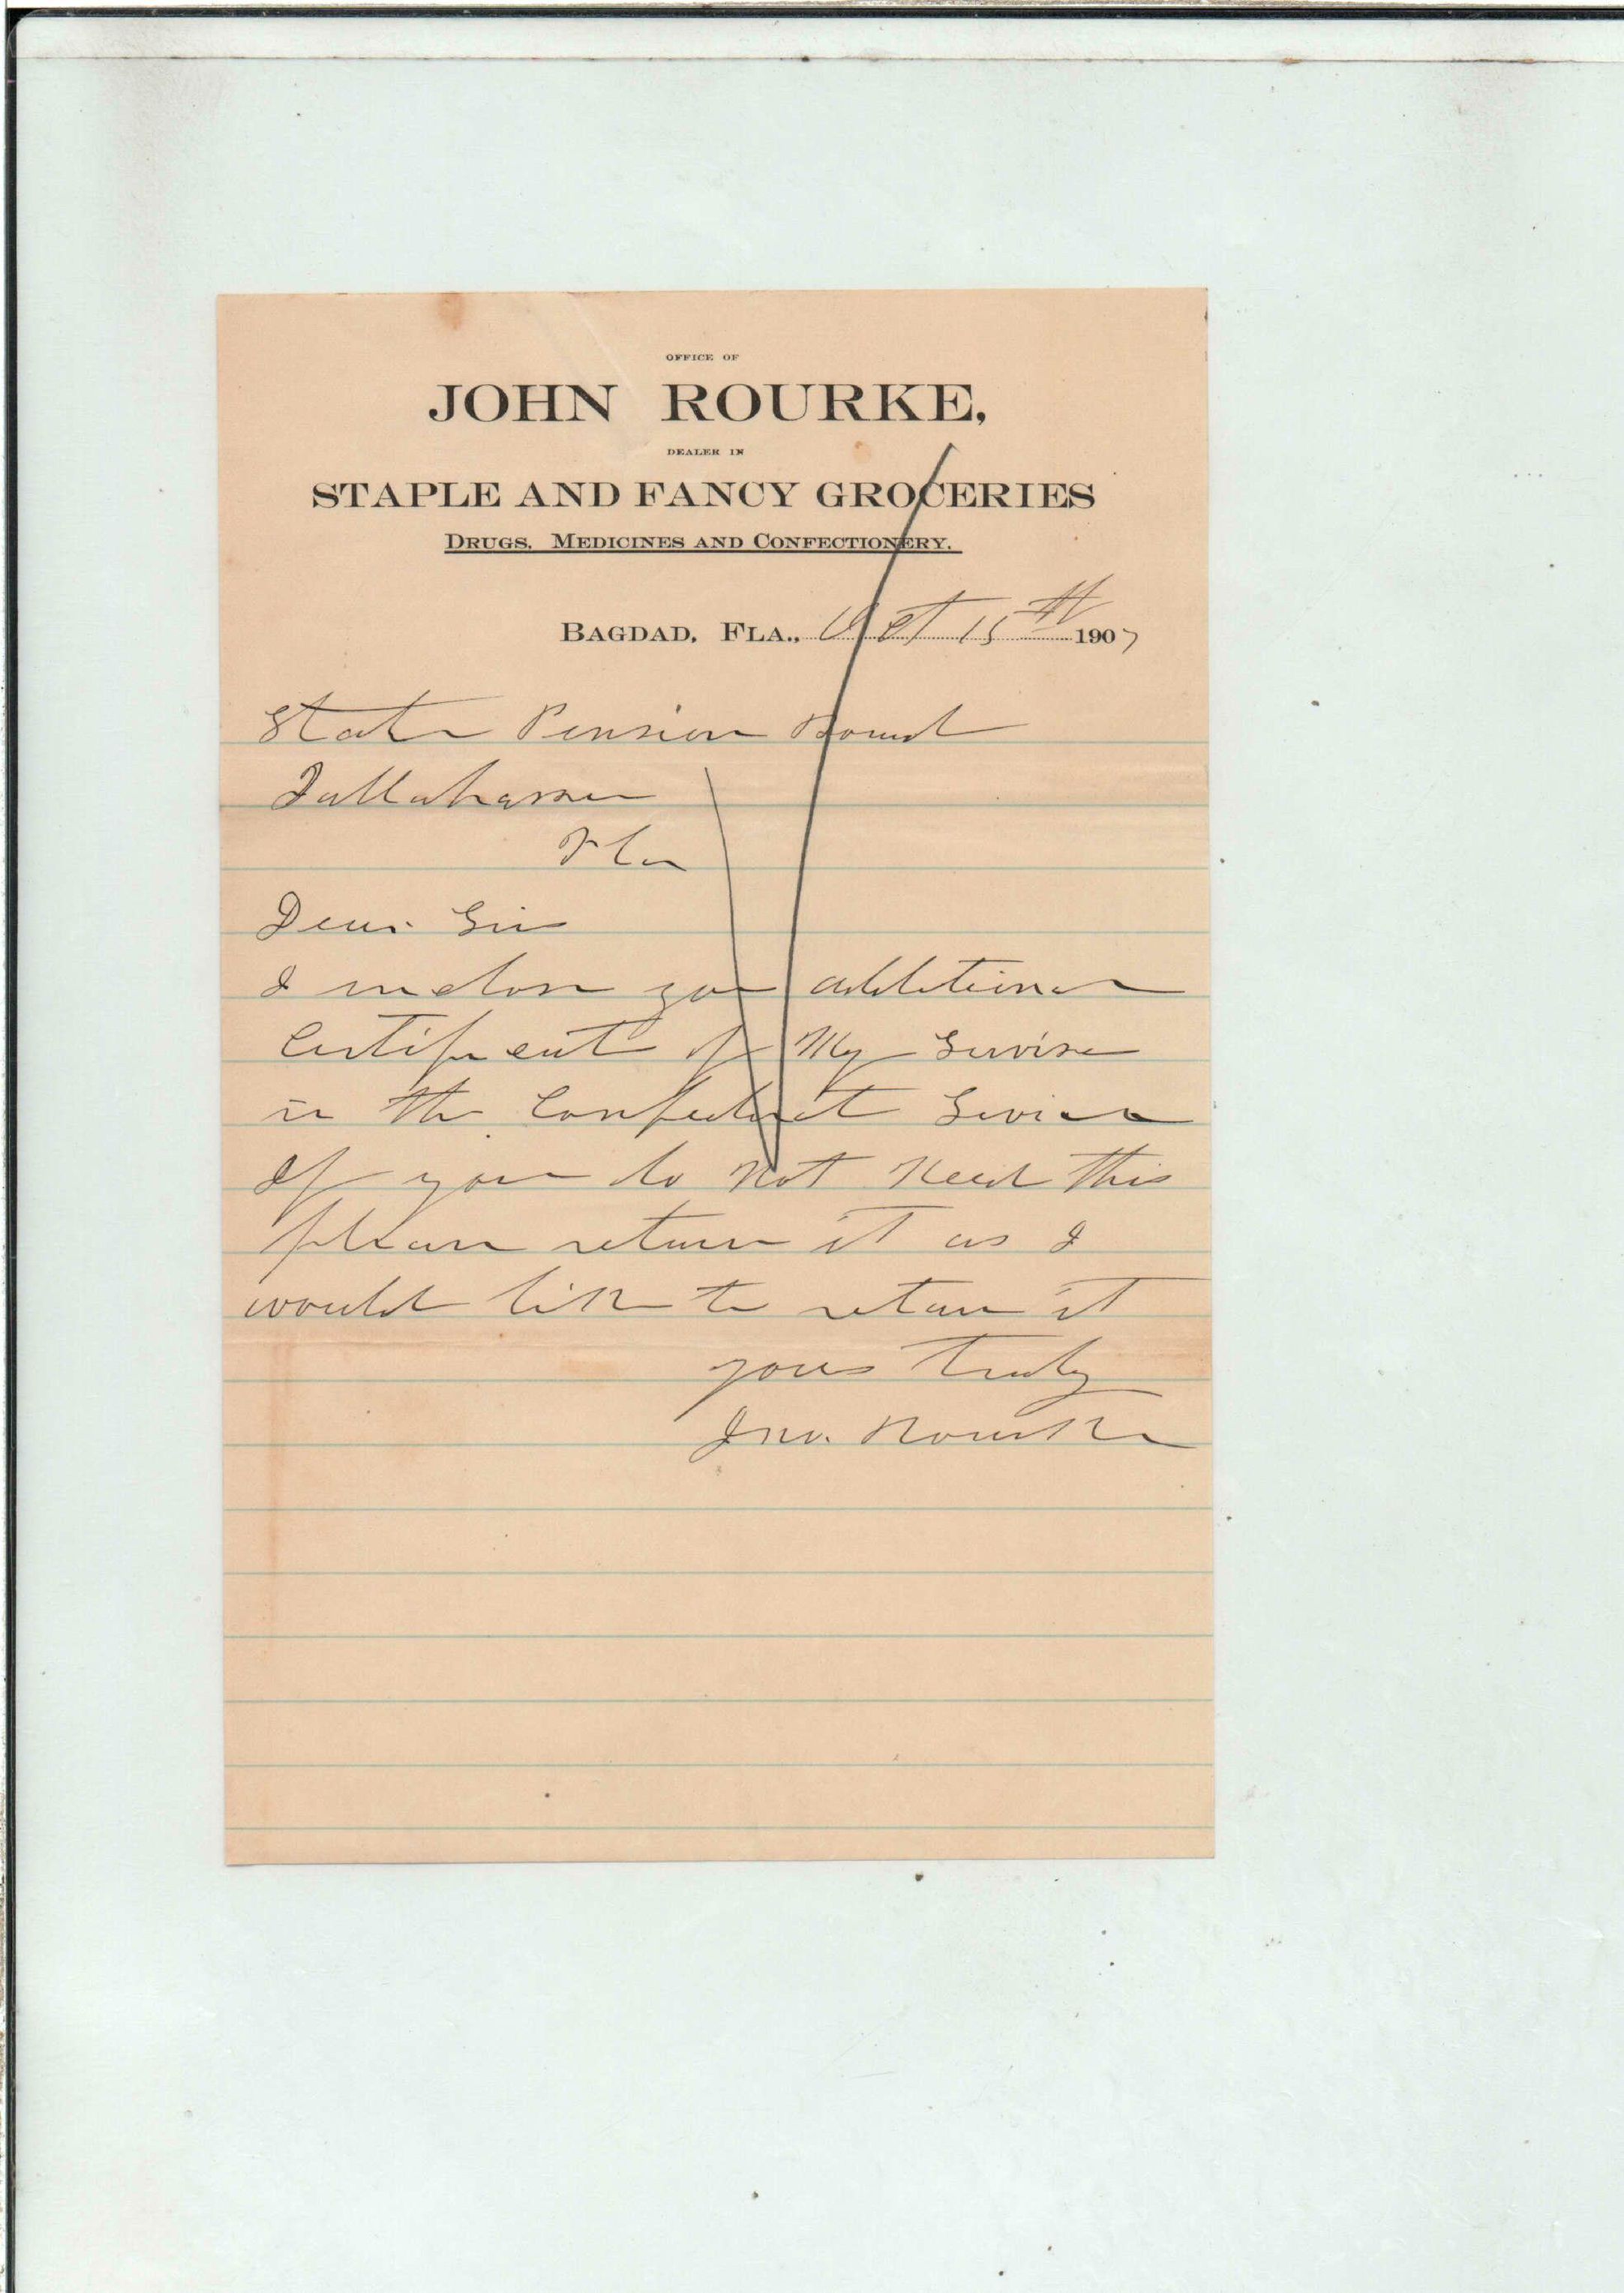 OFFICE OF
JOHN ROURKE,
DEALER IN
STAPLE AND FANCY GROCERIES
DRUGS, MEDICINES AND CONFECTIONERY.
BAGDAD, FLA., Oct 15th 1907
State Pension Board
Tallahassee
Fla
Dear Sir
I inclose you additional
Certificate of My Service
in the Confederate Service
If you do Not Need this
please return it as I
would like to retain it
yours truly
Jno. Rourke